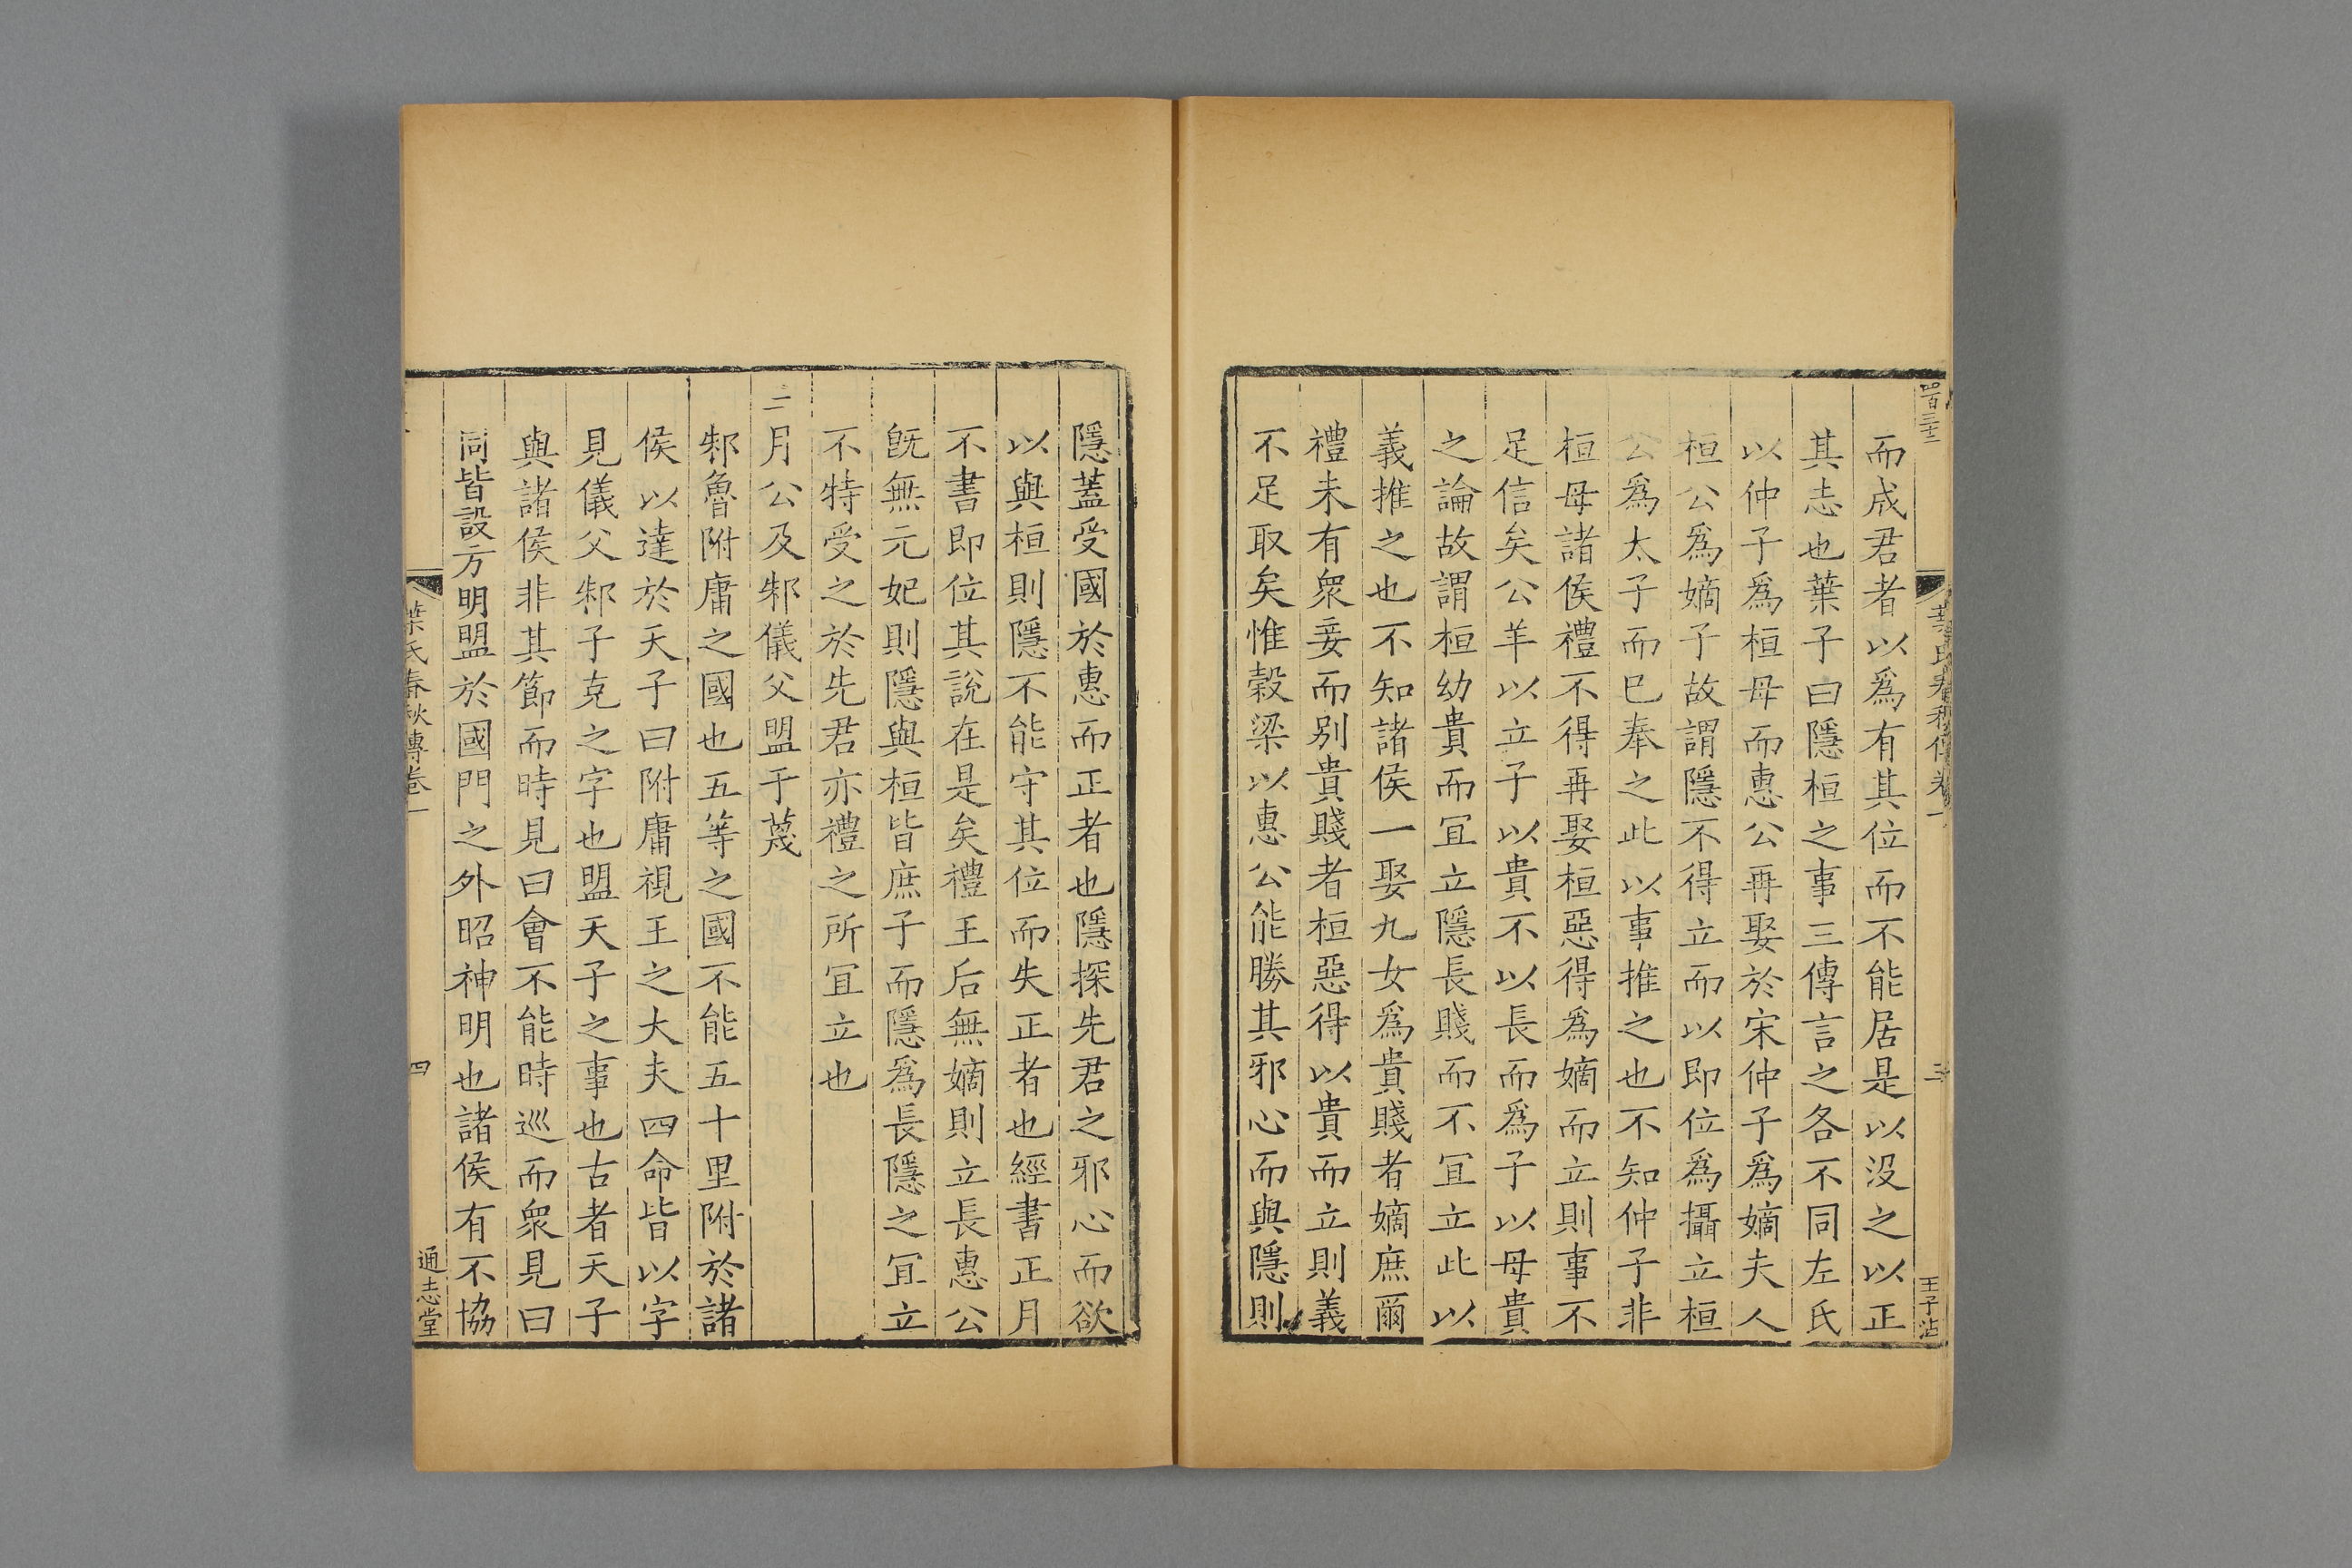 而成君者以爲有其位而不能居是以没之以正
其志也葉子曰隱桓之事三傳言之各不同左氏
以仲子爲桓母而惠公再娶於宋仲子爲嫡夫人
桓公爲嫡子故謂隱不得立而以即位爲攝立桓
公爲太子而已奉之此以事推之也不知仲子非
桓母諸侯禮不得再娶桓惡得爲嫡而立則事不
足信矣公羊以立子以貴不以長而爲子以母貴
之論故謂桓幼貴而冝立隱長賤而不冝立此以
義推之也不知諸侯一娶九女爲貴賤者嫡庶爾
禮未有衆妾而别貴賤者桓惡得以貴而立則義
不足取矣惟榖梁以惠公能勝其邪心而與隱則
隱蓋受國於惠而正者也隱探先君之邪心而欲
以與桓則隱不能守其位而失正者也經書正月
不書即位其說在是矣禮王后無嫡則立長惠公
旣無元妃則隱與桓皆庶子而隱爲長隱之冝立
不特受之於先君亦禮之所冝立也
月公及邾儀父盟于蔑
邾魯附庸之國也五等之國不能五十里附於諸
侯以達於天子曰附庸視王之大夫四命皆以字
見儀父邾子克之字也盟天子之事也古者天子
與諸侯非其節而時見曰會不能時巡而衆見曰
同皆設方明盟於國門之外昭神明也諸侯有不協
葉氏春秋傳卷一
四
通志堂